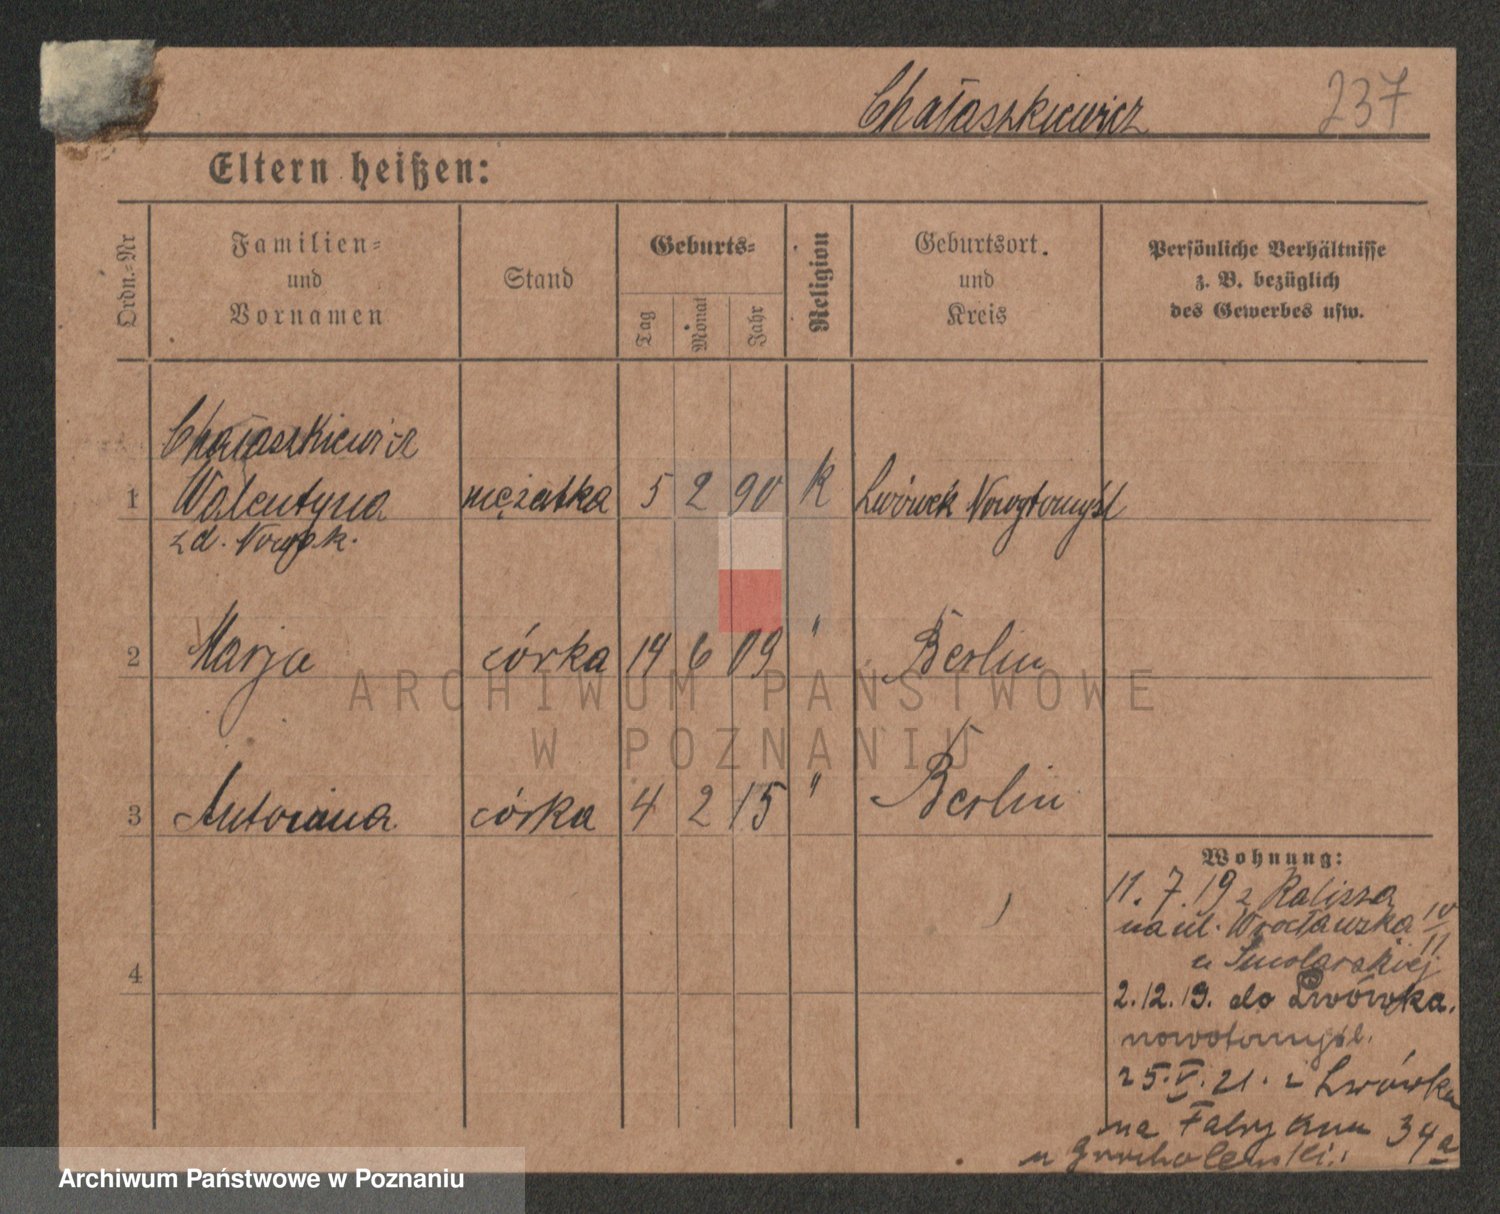 Chałaszkiewicz 237
Eltern heißen:
Ordn.-Nr
Familien-
und
Vornamen
Stand
Geburts-
Tag
Monat
Jahr
Religion
Geburtsort
und
Kreis
Persönliche Verhältnisse
z. B. bezüglich
des Gewerbes usw.
Chałaszkiewicz
1 Walentyna mężatka 5 2 90 k Lwówek Nowytomyśl
zd.
2 Marja córka 14 6 09 " Berlin
3 Antonina córka 4 2 15 " Berlin
Wohnung:
11. 7. 19 z Kalisza
na ul. Wrocławska IV/11
u Smolarskiej
4
2. 12. 19. do Lwówka.
nowotomyśl.
25. V. 21. z Lwówka
na 34a
ARCHIWUM PAŃSTWOWE
W POZNANIU
Archiwum Państwowe w Poznaniu